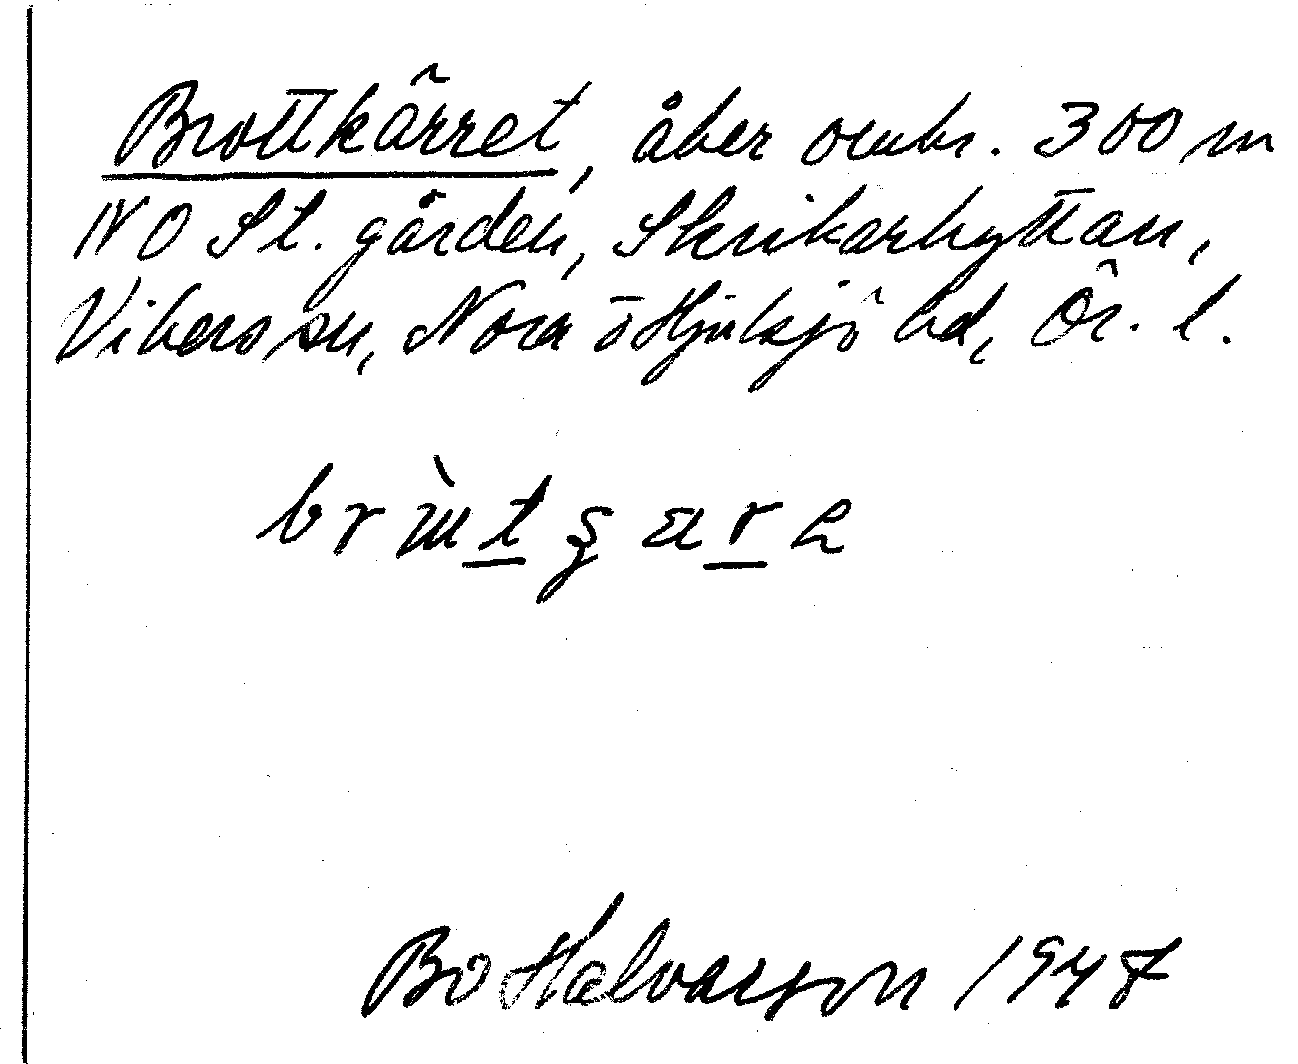 Brottkärret, åker omkr. 300 m
NO St. gården, Skrikarhyttan,
Vikers sn, Nora o Hjulsjö bd, Ör. l.
Bo Halvarson 1947